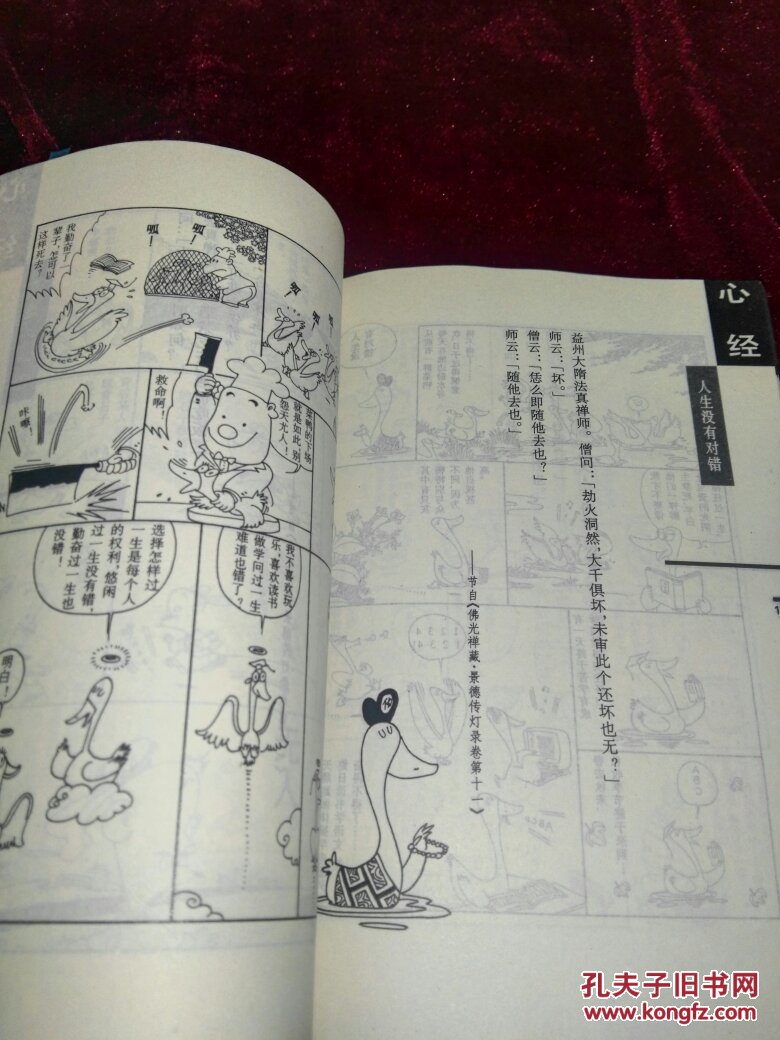 我勤奋了一
辈子，怎可以
这样死去？
呱！
呱！
菜鸭的下场
就是如此，别
怨天尤人！
救命啊！
咔嚓！
我不喜欢玩
乐，喜欢读书
做学问过一生
难道也错了？
选择怎样过
一生是每个人
的权利，悠闲
过一生没有错，
勤奋过一生也
没错！
明白！
心经
人生没有对错
益州大隋法真禅师。僧问：「劫火洞然，大千俱坏，未审此个还坏也无？」
师云：「坏。」
僧云：「恁么即随他去也？」
师云：「随他去也。」
——节自《佛光禅藏·景德传灯录卷第十一》
孔夫子旧书网
www.kongfz.com